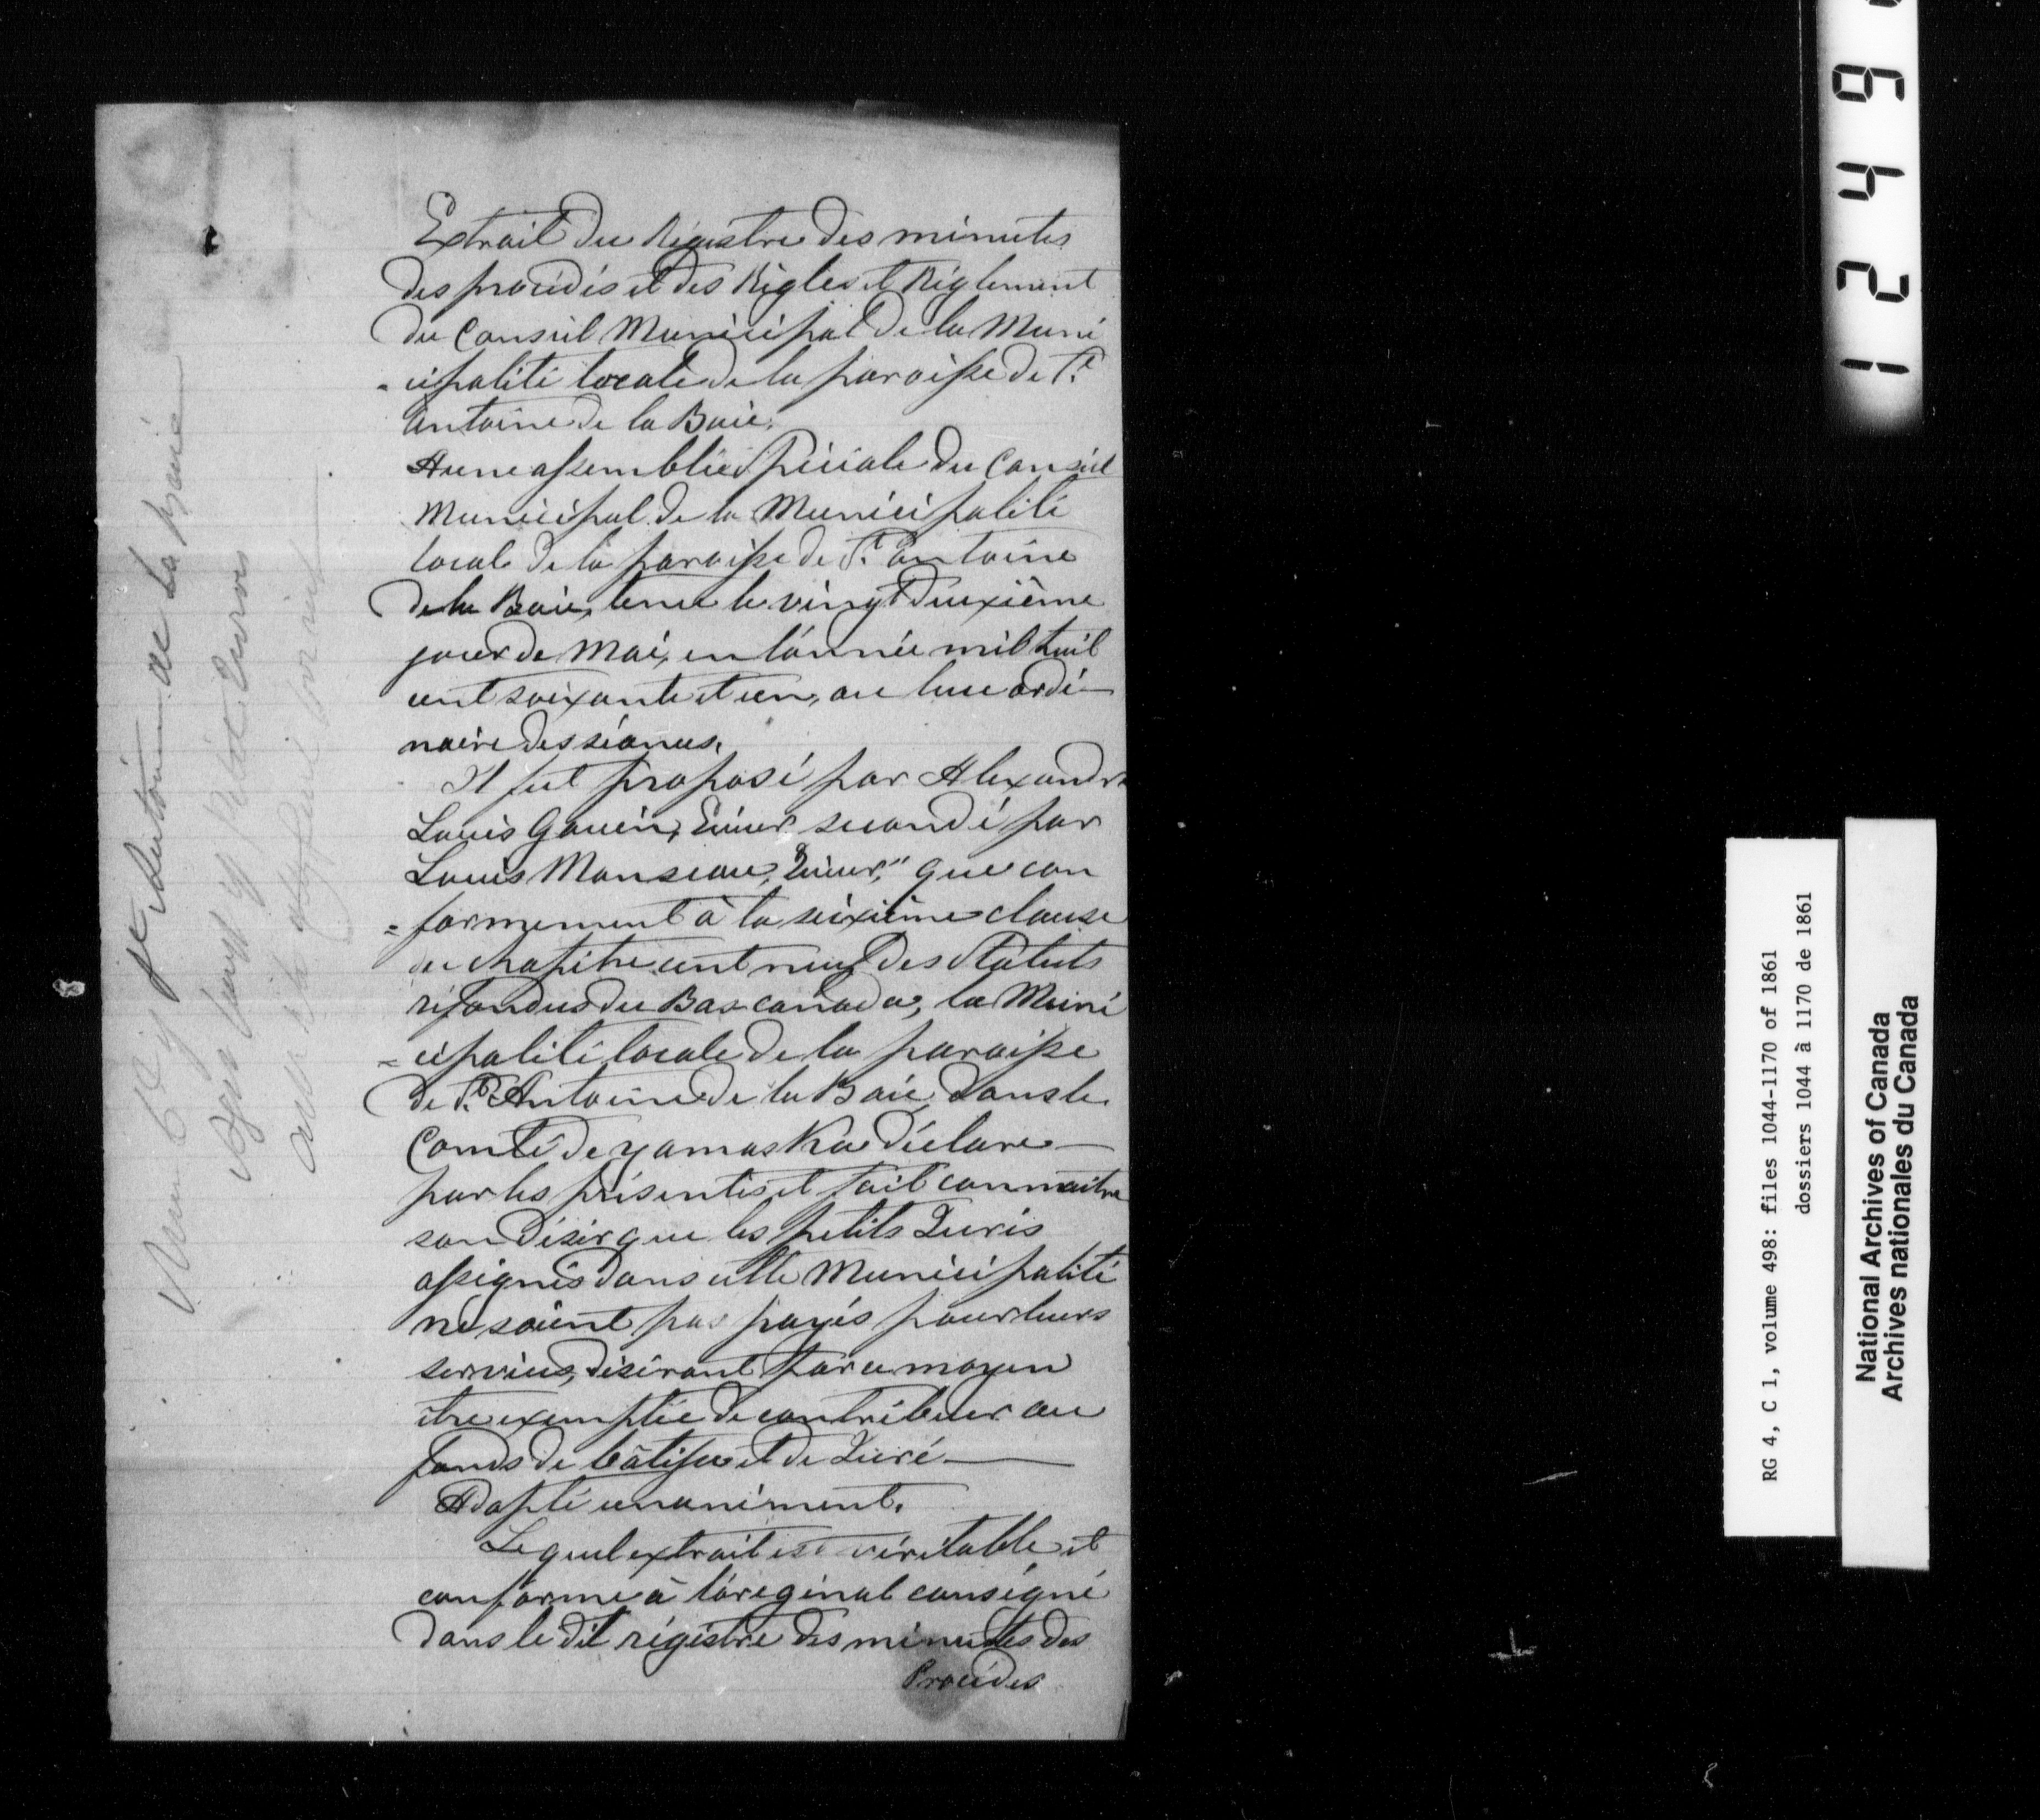 Extrait du Régistre des minutes
des procédés et des Règles et Règlement
du Conseil Municipal de la Muni
=cipalité locale de la paroisse de St
Antoine de la Baie.
A une assemblée Spéciale du Conseil
Municipal de la Municipalité
locale de la paroisse de St Antoine
de la Baie, tenue le vingt deuxième
jour de Mai, en l'année mil huit
cent soixante et un, au lieu ordi-
naire des séances.
Il fut proposé par Alexandre
Louis Gouin, Ecuier secondé par
Louis Manseau, Ecuier, " que con
=formement à la seixième clause
du chapitre cent neuf des Statuts
réfondus du Bas canada, la Muni
=cipalité locale de la paroisse
de St Antoine de la Baie, dans le
Comté de yamaska déclare
par les présentes et fait connaitre
son désir que les petits Jurés
assignés dans cette Municipalité
ne soient pas payés pour leurs
services, désirant par ce moyen
être exemptée de contribuer au
fonds de bâtisse et de Juré
Adopté unaniment.
Le quel extrait est véritable et
conforme à l'original consigné
dans le dit régistre des minutes des
Procédés
St Antoine de La Baie
1 2 4 9
RG 4, C 1, volume 498: files 1044-1170 of 1861
dossiers 1044 à 1170 de 1861
National Archives of Canada
Archives nationales du Canada